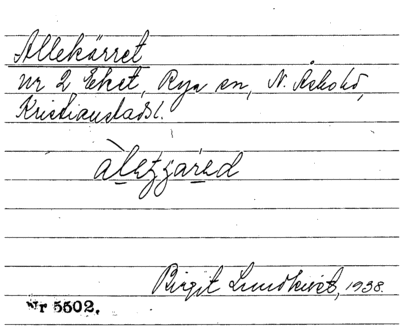 Allekärret
nr 2 Eket, Rya sn, N. Åsbohd,
Kristianstads l.
Birgit Lundkvist, 1938.
Nr 5502.